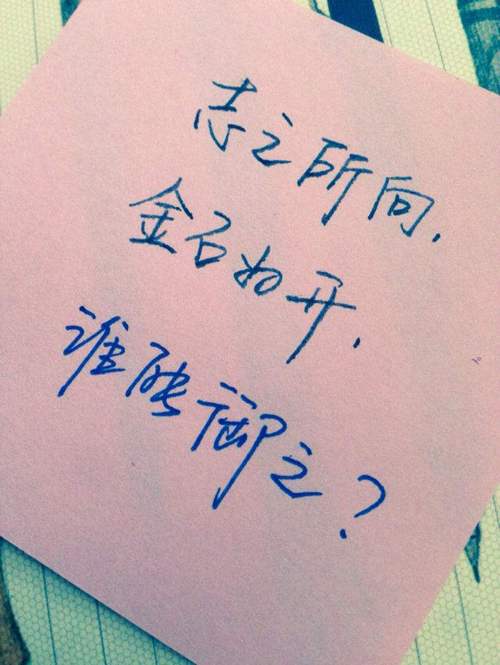 志之所向,
金石为开,
谁能御之?